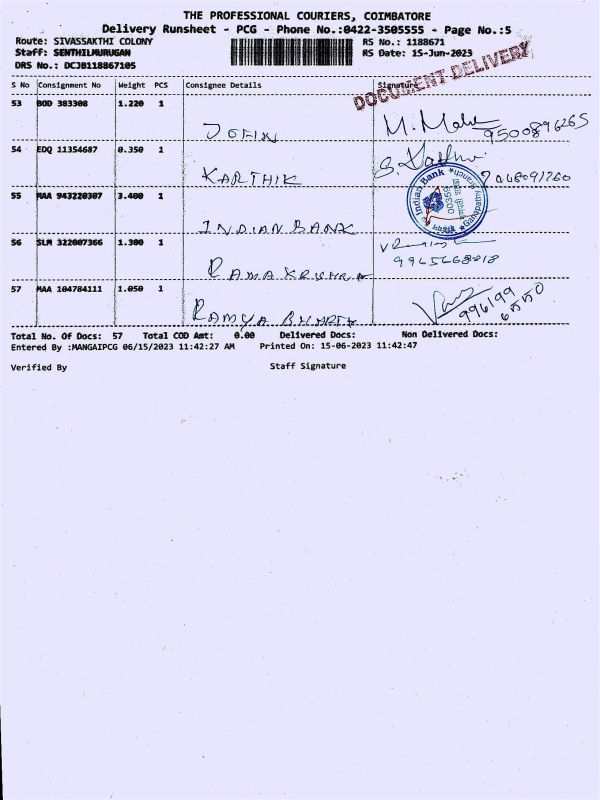 THE PROFESSIONAL COURIERS, COIMBATORE
Delivery Runsheet - PCG - Phone No.:0422-3505555 - Page No.:5
Route: SIVASSAKTHI COLONY RS No.: 1188671
Staff: SENTHILMURUGAN RS Date: 15-Jun-2023
DRS No.: DCJB118867105
DOCUMENT DELIVERY
S No Consignment No Weight PCS Consignee Details Signature
53 BOD 383308 1.220 1
JOFIN M. 9500896265
54 EDQ 11354687 0.350 1
KARTHIK
55 MAA 943220307 3.400 1
Indian Bank
INDIAN BANK
56 SLM 322007366 1.300 1
RAMAKRISHNA
57 MAA 104784111 1.050 1
RAMYA
Total No. Of Docs: 57 Total COD Amt: 0.00 Delivered Docs: Non Delivered Docs:
Entered By :MANGAIPCG 06/15/2023 11:42:27 AM Printed On: 15-06-2023 11:42:47
Verified By Staff Signature